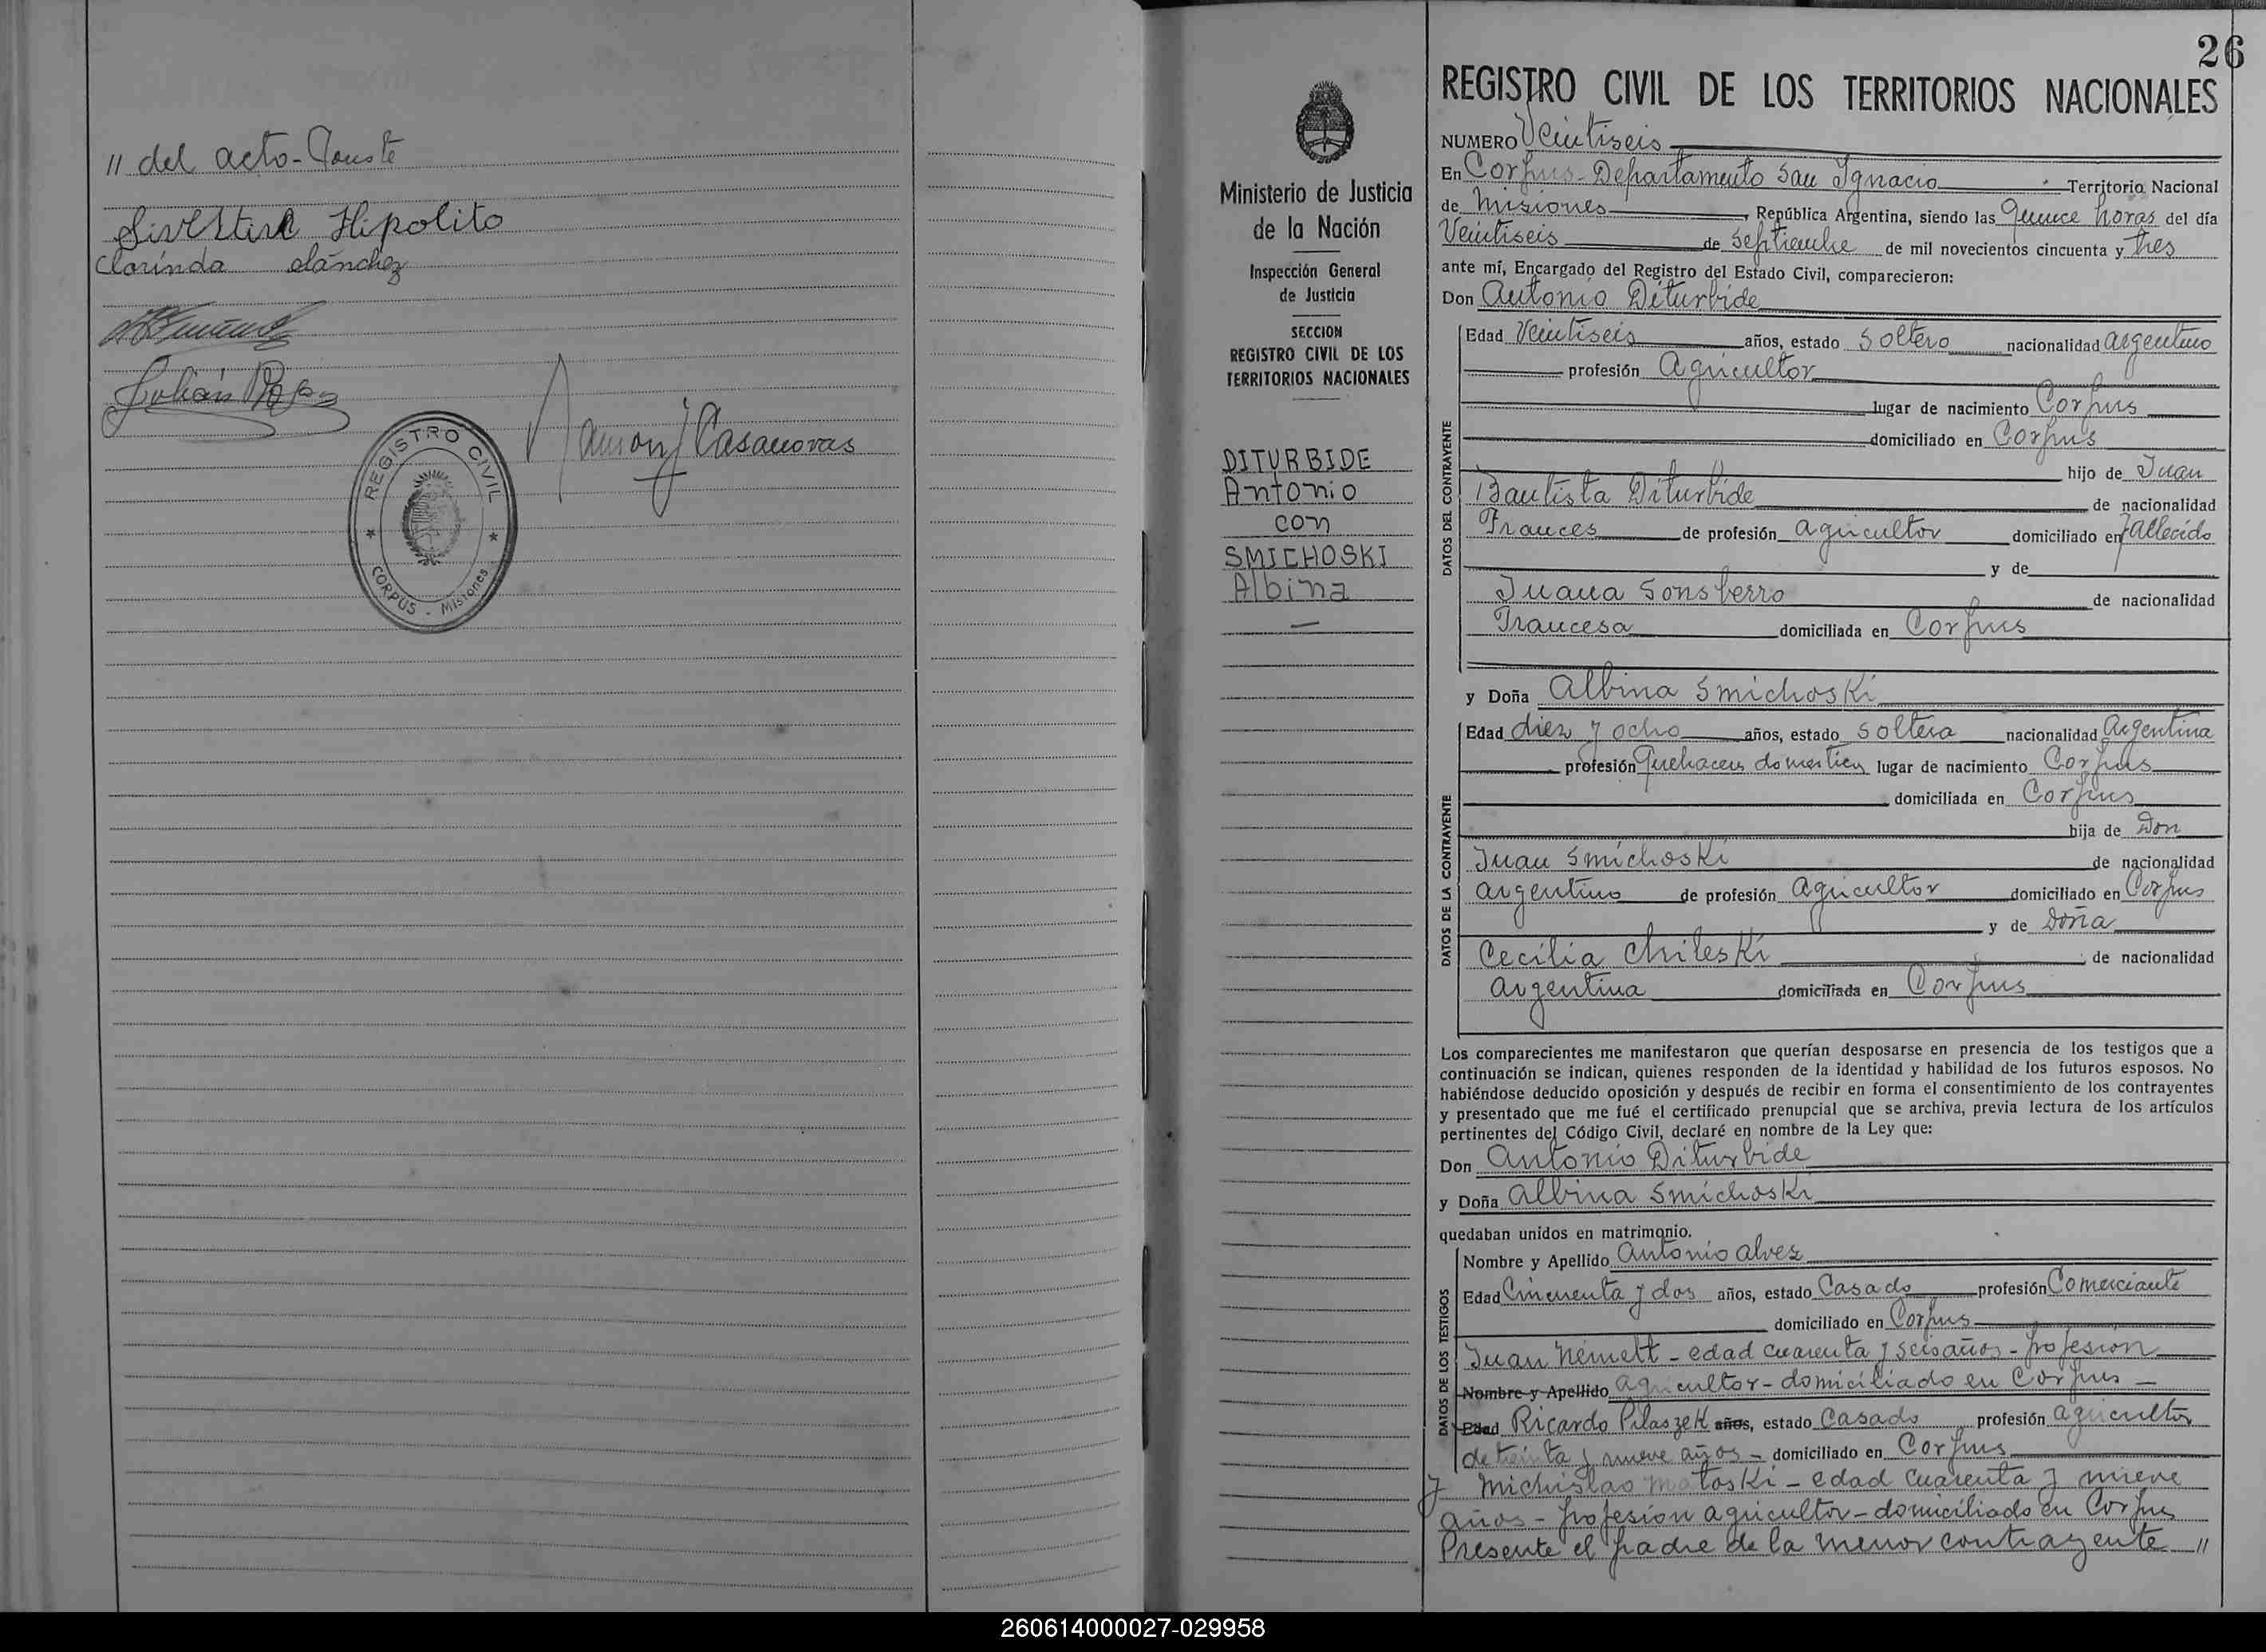 〃 del acto-Conste
Silvestre Hipolito
Clarinda Sánchez
Julián
Ramon J Casanovas
REGISTRO CIVIL
CORPUS - Misiones
26
Ministerio de Justicia
de la Nación
Inspección General
de Justicia
SECCION
REGISTRO CIVIL DE LOS
TERRITORIOS NACIONALES
DITURBIDE
Antonio
con
SMICHOSKI
Albina
REGISTRO CIVIL DE LOS TERRITORIOS NACIONALES
NUMERO Veintiseis
En Corpus-Departamento San Ignacio Territorio Nacional
de Misiones, República Argentina, siendo las quince horas del día
Veintiseis de Septiembre de mil novecientos cincuenta y tres
ante mí, Encargado del Registro del Estado Civil, comparecieron:
Don Antonio Diturbide
DATOS DEL CONTRAYENTE
Edad Veintiseis años, estado Soltero nacionalidad argentino
profesión Agricultor
lugar de nacimiento Corpus
domiciliado en Corpus
hijo de Juan
Bautista Diturbide de nacionalidad
Frances de profesión agricultor domiciliado en fallecido
y de
Juana Sonsberro de nacionalidad
Francesa domiciliada en Corpus
y Doña Albina Smichoski
DATOS DE LA CONTRAYENTE
Edad diez y ocho años, estado Soltera nacionalidad Argentina
profesión Quehaceres domestico lugar de nacimiento Corpus
domiciliada en Corpus
hija de Don
Juan Smichoski de nacionalidad
argentino de profesión Agricultor domiciliado en Corpus
y de Doña
Cecilia Chileski de nacionalidad
argentina domiciliada en Corpus
Los comparecientes me manifestaron que querían desposarse en presencia de los testigos que a
continuación se indican, quienes responden de la identidad y habilidad de los futuros esposos. No
habiéndose deducido oposición y después de recibir en forma el consentimiento de los contrayentes
y presentado que me fué el certificado prenupcial que se archiva, previa lectura de los artículos
pertinentes del Código Civil, declaré en nombre de la Ley que:
Don Antonio Diturbide
y Doña Albina Smichoski
quedaban unidos en matrimonio.
DATOS DE LOS TESTIGOS
Nombre y Apellido Antonio Alvez
Edad Cincuenta y dos años, estado Casado profesión Comerciante
domiciliado en Corpus
Juan Nemett - edad cuarenta y seis años - profesión
Nombre y Apellido agricultor - domiciliado en Corpus -
Edad Ricardo Pilaszek años, estado Casado profesión agricultor
de treinta y nueve años - domiciliado en Corpus
y Michislao Matoski - edad cuarenta y nueve
años - profesion agricultor - domiciliado en Corpus
Presente el padre de la menor contrayente 〃
260614000027-029958